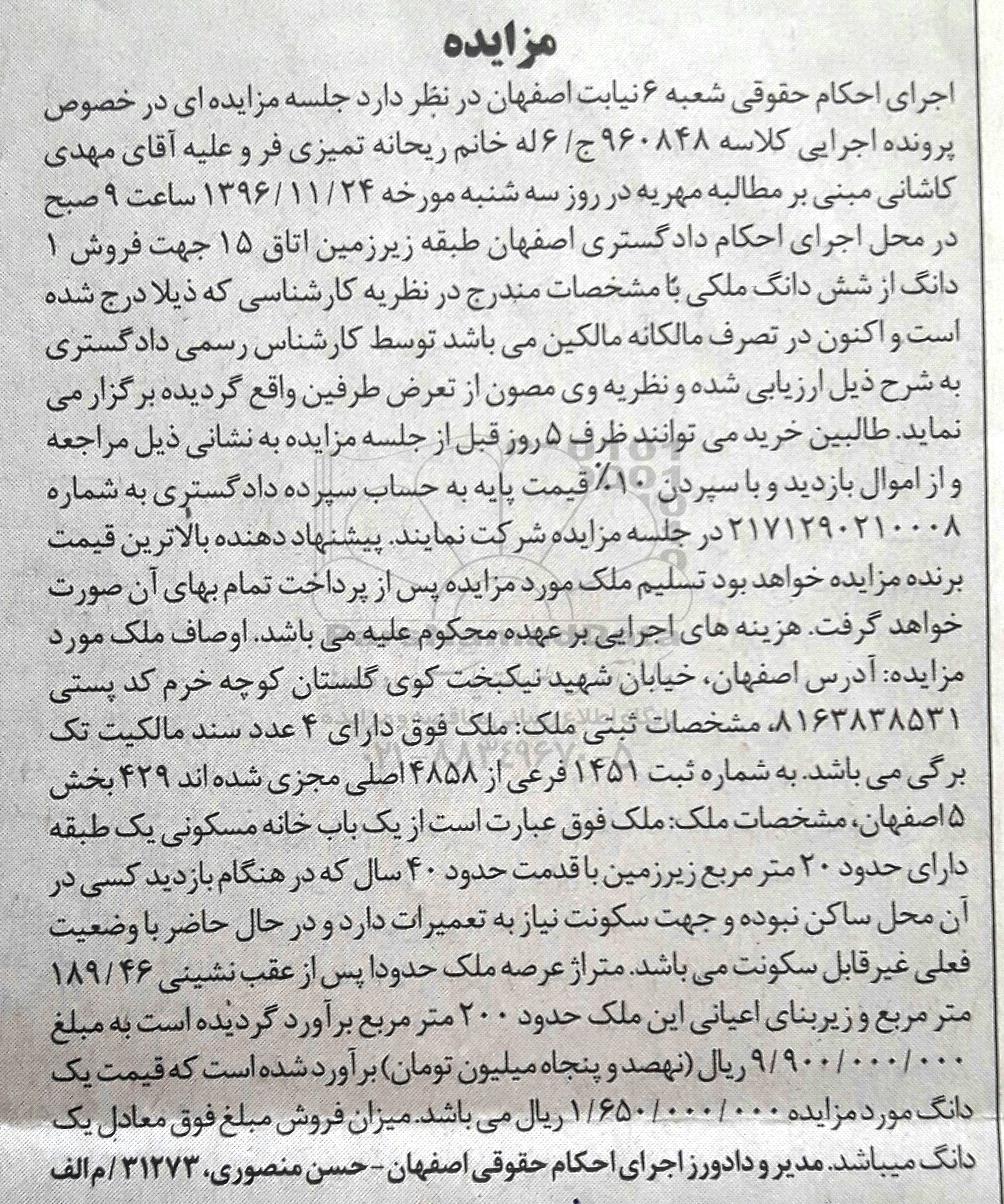 مزایده
اجرای احکام حقوقی شعبه ۶ نیابت اصفهان در نظر دارد جلسه مزایده ای در خصوص
پرونده اجرایی کلاسه ۹۶۰۸۴۸ ج/ ۶ له خانم ریحانه تمیزی فر و علیه آقای مهدی
کاشانی مبنی بر مطالبه مهریه در روز سه شنبه مورخه ۱۳۹۶/۱۱/۲۴ ساعت ۹ صبح
در محل اجرای احکام دادگستری اصفهان طبقه زیرزمین اتاق ۱۵ جهت فروش ۱
دانگ از شش دانگ ملکی با مشخصات مندرج در نظریه کارشناسی که ذیلا درج شده
است و اکنون در تصرف مالکانه مالکین می باشد توسط کارشناس رسمی دادگستری
به شرح ذیل ارزیابی شده و نظریه وی مصون از تعرض طرفین واقع گردیده برگزار می
نماید. طالبین خرید می توانند ظرف ۵ روز قبل از جلسه مزایده به نشانی ذیل مراجعه
و از اموال بازدید و با سپردن ۱۰٪ قیمت پایه به حساب سپرده دادگستری به شماره
۲۱۷۱۲۹۰۲۱۰۰۰۸ در جلسه مزایده شرکت نمایند. پیشنهاد دهنده بالاترین قیمت
برنده مزایده خواهد بود تسلیم ملک مورد مزایده پس از پرداخت تمام بهای آن صورت
خواهد گرفت. هزینه های اجرایی بر عهده محکوم علیه می باشد. اوصاف ملک مورد
مزایده: آدرس اصفهان، خیابان شهید نیکبخت کوی گلستان کوچه خرم کد پستی
۸۱۶۳۸۳۸۵۳۱، مشخصات ثبتی ملک: ملک فوق دارای ۴ عدد سند مالکیت تک
برگی می باشد. به شماره ثبت ۱۴۵۱ فرعی از ۴۸۵۸ اصلی مجزی شده اند ۴۲۹ بخش
۵ اصفهان، مشخصات ملک: ملک فوق عبارت است از یک باب خانه مسکونی یک طبقه
دارای حدود ۲۰ متر مربع زیرزمین با قدمت حدود ۴۰ سال که در هنگام بازدید کسی در
آن محل ساکن نبوده و جهت سکونت نیاز به تعمیرات دارد و در حال حاضر با وضعیت
فعلی غیر قابل سکونت می باشد. متراژ عرصه ملک حدودا پس از عقب نشینی ۱۸۹/۴۶
متر مربع و زیربنای اعیانی این ملک حدود ۲۰۰ متر مربع برآورد گردیده است به مبلغ
۹/۹۰۰/۰۰۰/۰۰۰ ریال (نهصد و پنجاه میلیون تومان) برآورد شده است که قیمت یک
دانگ مورد مزایده ۱/۶۵۰/۰۰۰/۰۰۰ ریال می باشد. میزان فروش مبلغ فوق معادل یک
دانگ میباشد. مدیر و دادورز اجرای احکام حقوقی اصفهان - حسن منصوری، ۳۱۲۷۳/ م الف